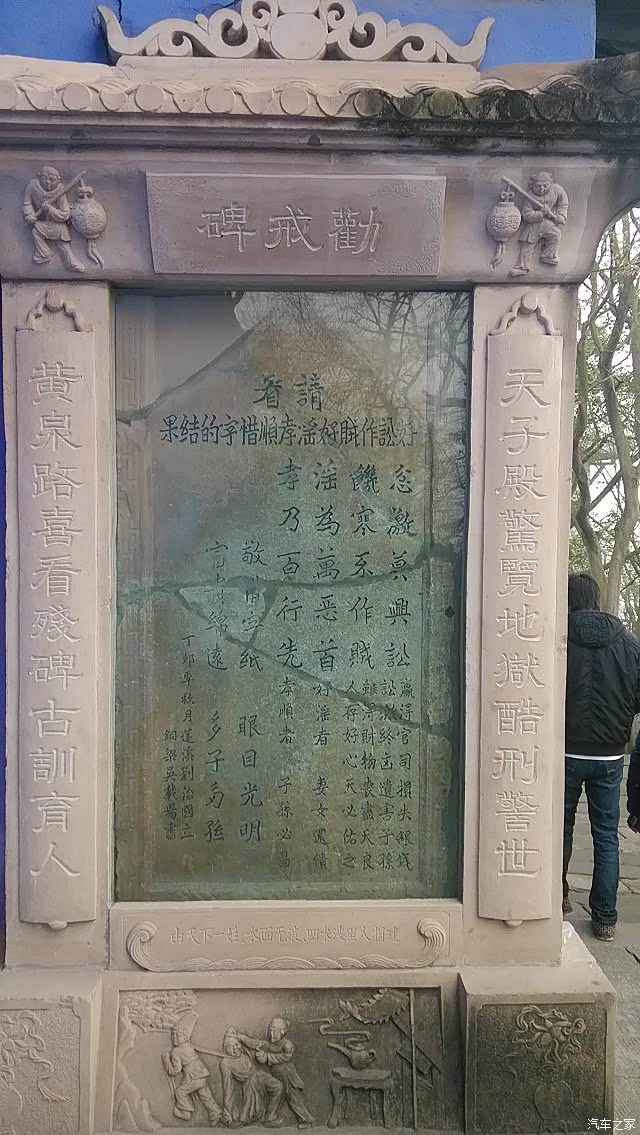 勸戒碑
天子殿驚覽地獄酷刑警世
黄泉路喜看殘碑古訓育人
請看
好訟作賊好滛孝順惜字的结果
忿激莫興訟 贏得官司損失銀錢
訟敗終凶遺害子孫
饑寒不作賊 雖得財物喪盡天良
人存好心天必佑之
滛為萬惡首 好滛者 妻女還債
孝乃百行先 孝順者 子孫必昌
敬惜字紙 眼目光明
富貴綿遠 多子多孫
丁卯年秋月蓬溪劉治國立
銅梁吳載揚書
汽车之家